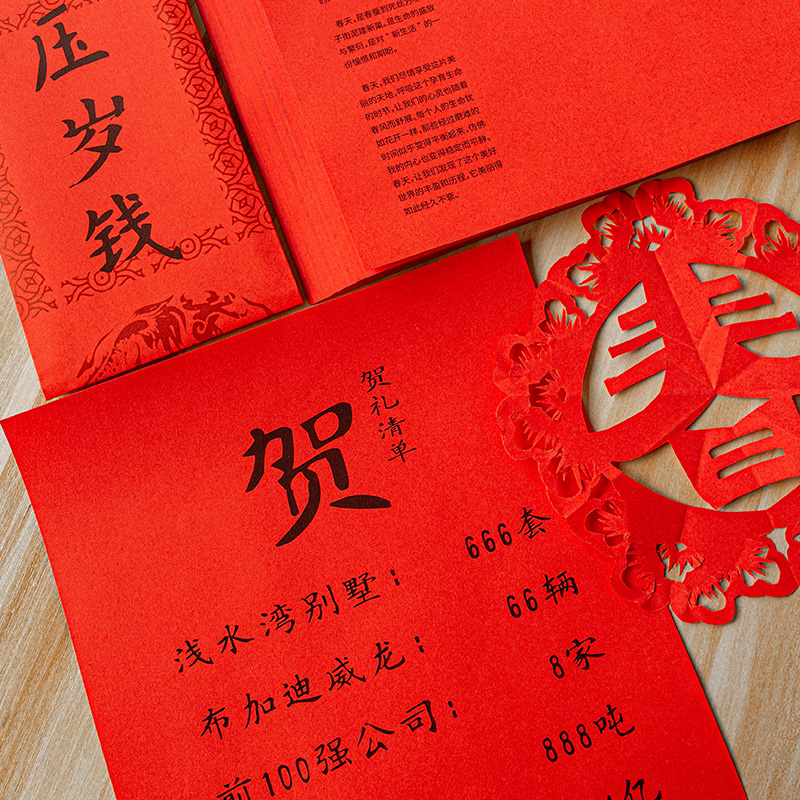 压岁钱
春天，是春蚕到死丝方
子衔泥建新巢。是生命的盛放
与繁衍，是对“新生活”的一
份憧憬和期盼。
春天，我们尽情享受这片美
丽的天地，呼吸这个孕育生命
的时节，让我们的心灵也随着
春风而舒展。每个人的生命犹
如花开一样，那些经过磨难的
时间似乎变得平衡起来，仿佛
我的内心也变得稳定而平静。
春天，让我们发现了这个美好
世界的丰盈和历程，它美丽得
如此经久不衰。
春
贺
贺礼清单
浅水湾别墅： 666套
布加迪威龙： 66辆
前100强公司： 8家
888吨
亿